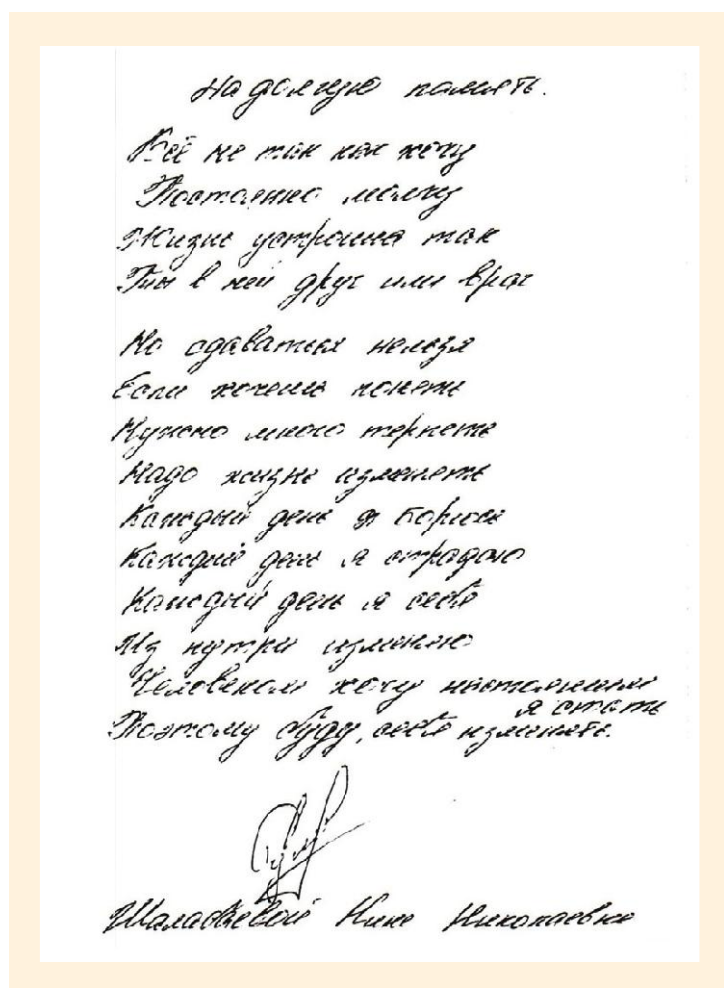 На долгую память.
Всё не так как хочу
Постоянно молчу
Жизнь устроина так
Ты в ней друг или враг
Но сдаваться нельзя
Если хочешь понять
Нужно много терпеть
Надо жизнь изменять
Каждый день я борюсь
Каждый день я страдаю
Каждый день я себя
Из нутри изменяю
Человеком хочу настоящим
я стать
Поэтому буду, себя изменять.
Нине Николаевне